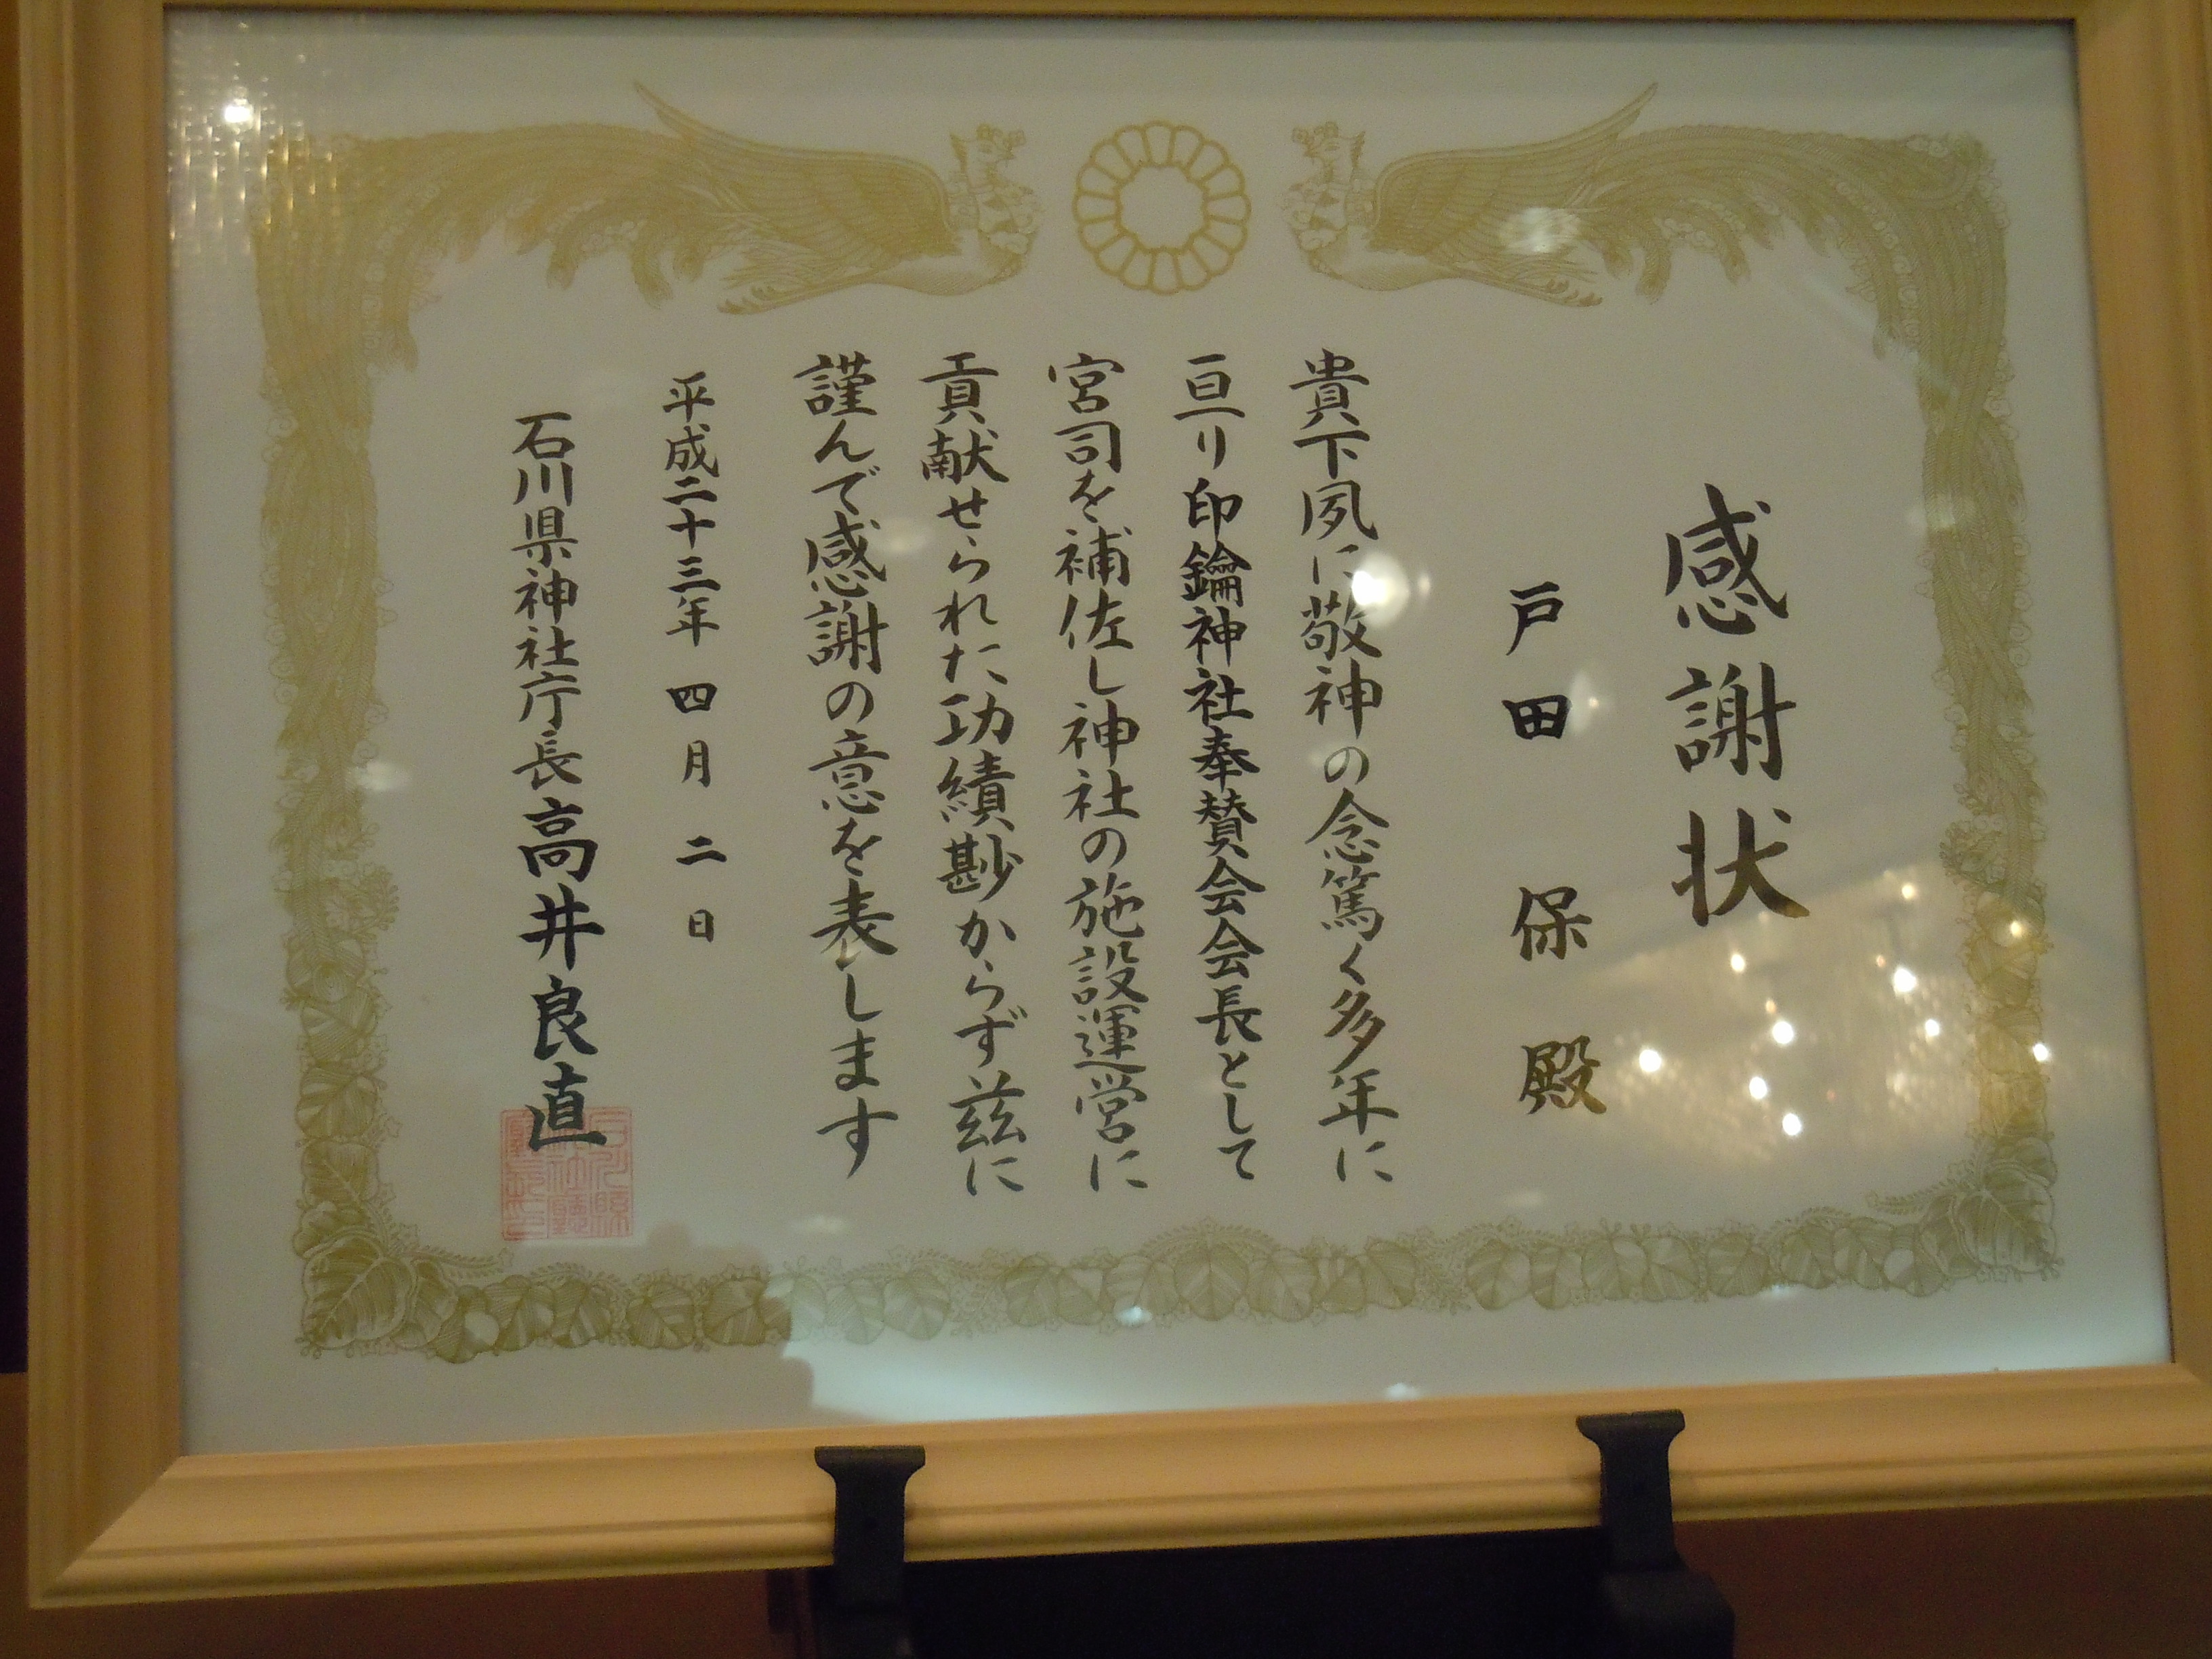 感謝状
戸田 保 殿
貴下夙に敬神の念篤く多年に
亘り印鑰神社奉賛会会長として
宮司を補佐し神社の施設運営に
貢献せられた功績尠からず茲に
謹んで感謝の意を表します
平成二十三年 四月 二日
石川県神社庁長 高井良直